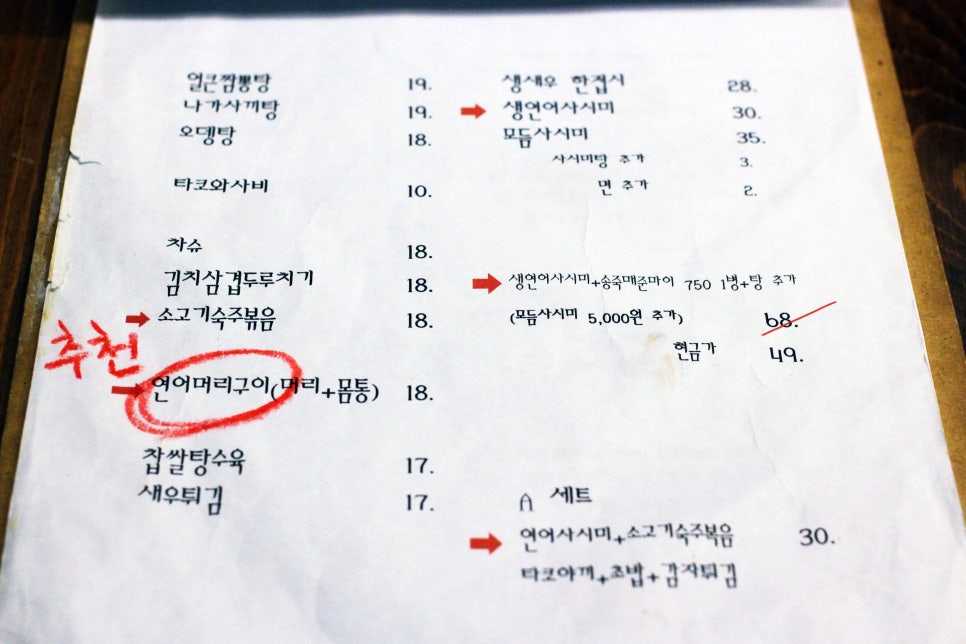 얼큰짬뽕탕 19.
나가사끼탕 19.
오뎅탕 18.
타코와사비 10.
차슈 18.
김치삼겹두루치기 18.
소고기숙주볶음 18.
추천
연어머리구이(머리+몸통) 18.
찹쌀탕수육 17.
새우튀김 17.
생새우 한접시 28.
생연어사시미 30.
모듬사시미 35.
사시미탕 추가 3.
면 추가 2.
생연어사시미+송죽매준마이 750 1병+탕 추가
(모듬사시미 5,000원 추가) 68.
현금가 49.
A 세트
연어사시미+소고기숙주복음 30.
타코야끼+초밥+감자튀김